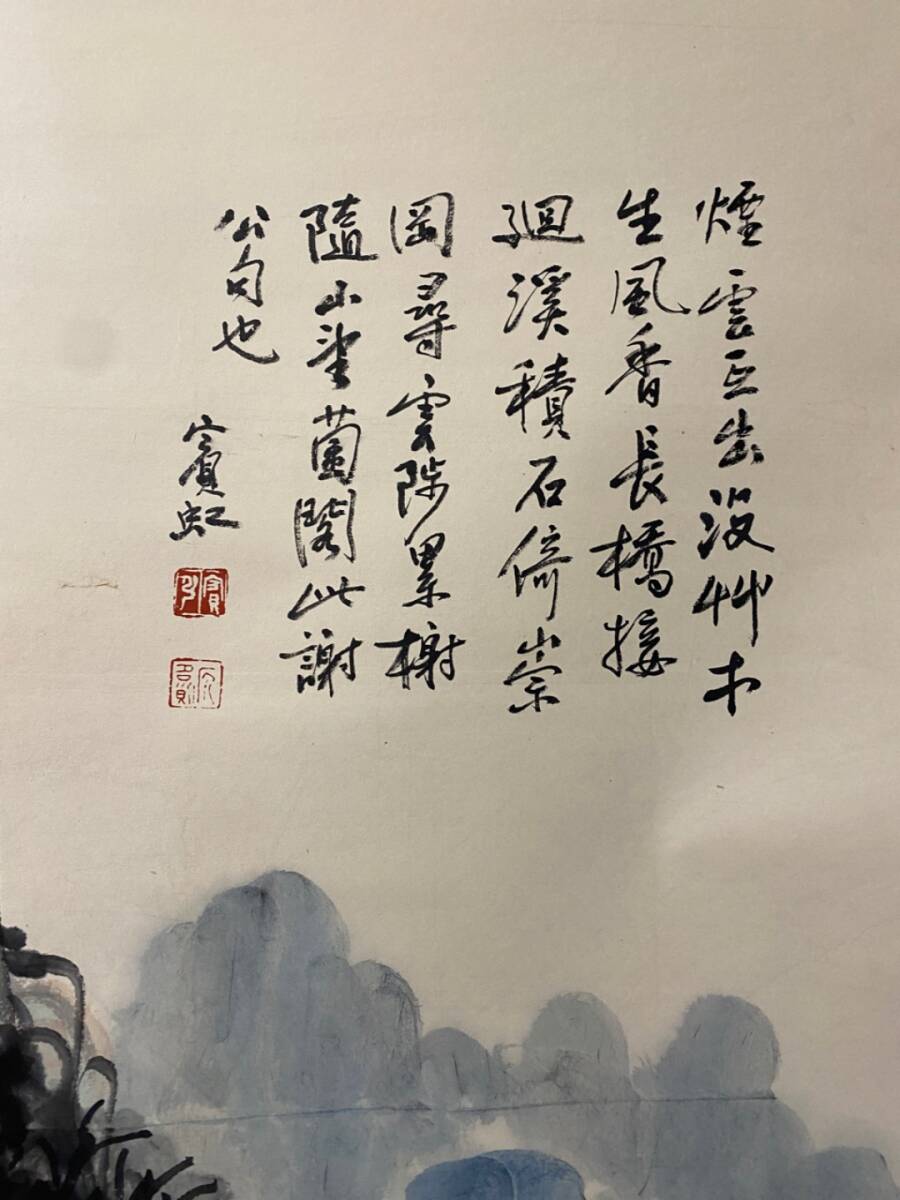 煙雲互出没艸木
生風香長橋接
迴溪積石倚崇
岡尋雲陟累榭
隨山望菌閣此謝
公句也
賓虹